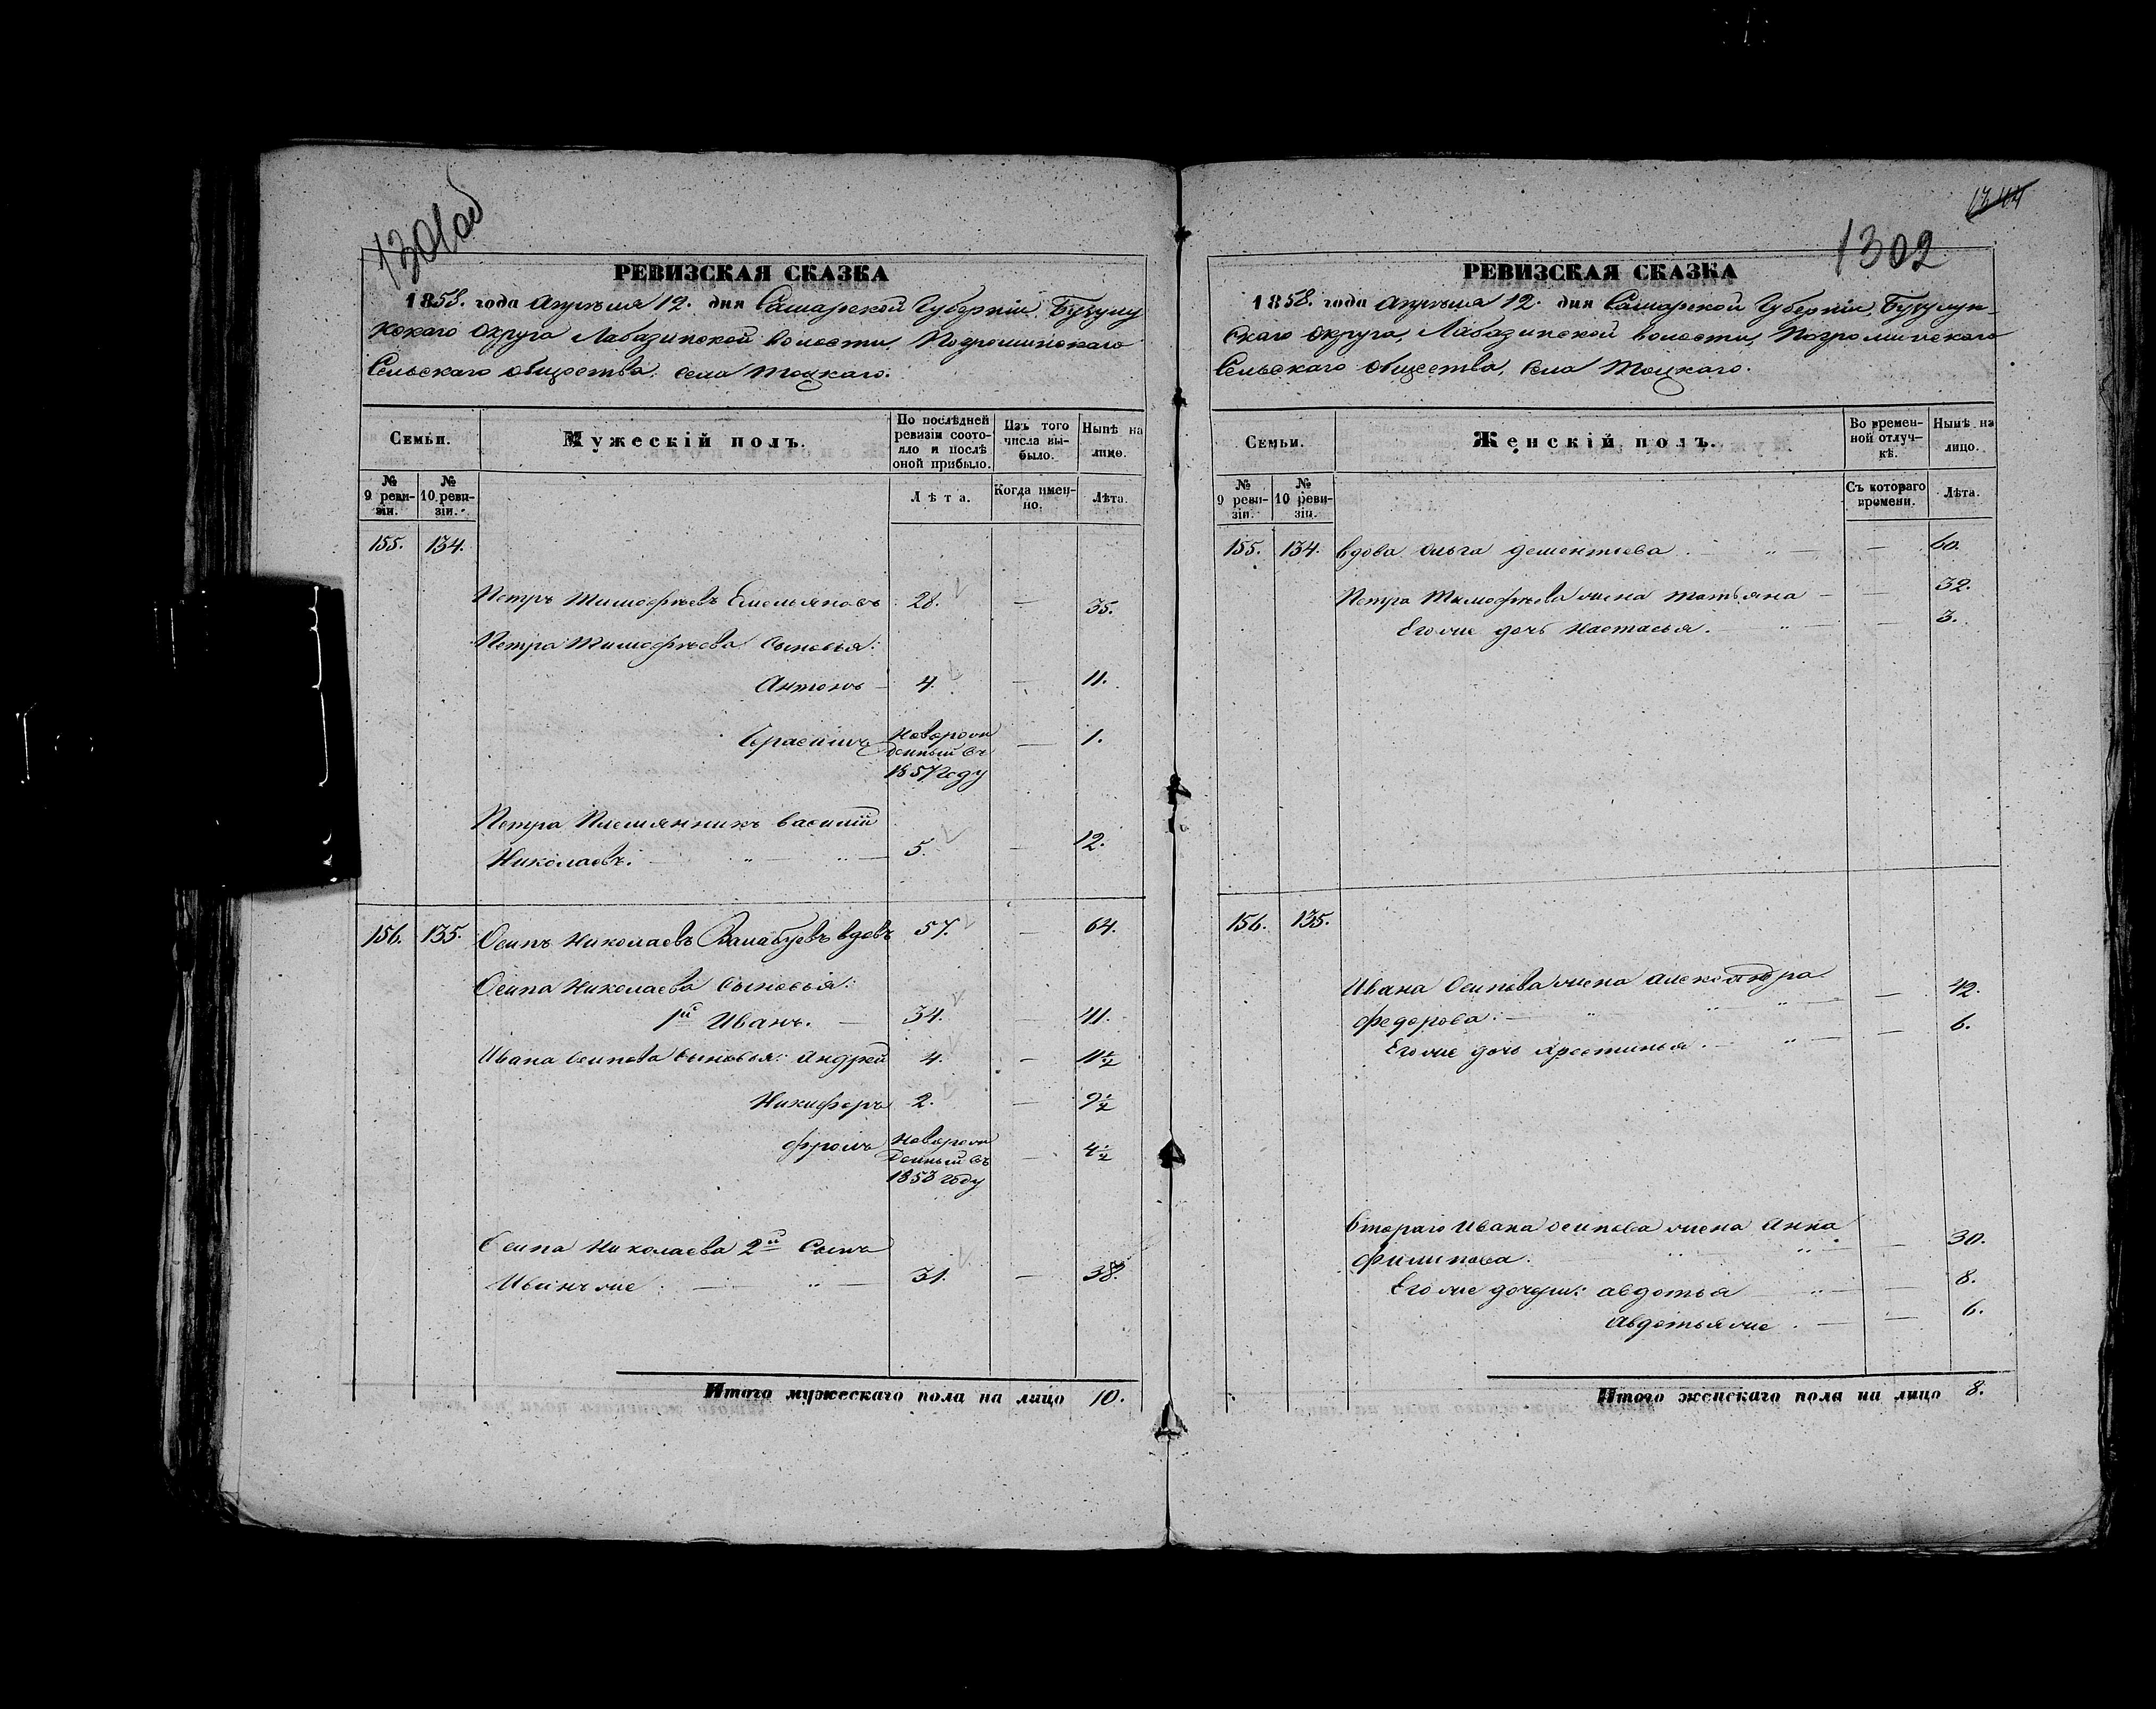 1301об
РЕВИЗСКАЯ СКАЗКА
1858. года Апрѣля 12. дня Самарской Губерніи, Бузулу
кскаго Округа Лабазинской волости, Погроминскаго
Сельскаго общества, села Тоцкаго.
Семьи.
Мужескій полъ.
По послѣдней ревизіи состояло и послѣ оной прибыло.
Изъ того числа выбыло.
Нынѣ на лицо.
№ 9 ревизіи.
№ 10 ревизіи.
Лѣта.
Когда именно.
Лѣта.
155. 134.
Петръ Тимофѣевъ Емельяновъ 28. — 35.
Петра Тимофѣева Сыновья:
Антонъ — 4. — 11.
Герасимъ Новорож
денный въ — 1.
1857 году
Петра Племянникъ Василій
Николаевъ. — 5. — 12.
156. 135. Осипъ Николаевъ вдовъ 57. — 64.
Осипа Николаева Сыновья:
1й Иванъ. — 34. — 41.
Ивана Осипова Сыновья: Андрей 4. — 11½
Никифоръ 2. — 9½
Фролъ Новорож
денный въ — 4½
1853 году
Осипа Николаева 2й Сынъ
Иванъ же. — 31. — 38.
Итого мужескаго пола на лицо 10.
1302
РЕВИЗСКАЯ СКАЗКА
1858. года Апрѣля 12. дня Самарской Губерніи, Бузулук-
скаго Округа, Лабазинской волости, Погроминскаго
Сельскаго общества, села Тоцкаго.
Семьи.
Женскій полъ.
Во временной отлучкѣ.
Нынѣ на лицо.
№ 9 ревизіи.
№ 10 ревизіи.
Съ котораго времени.
Лѣта.
155. 134. вдова Ольга Дементьева. — — 60.
Петра Тимофѣева жена Татьяна — — 32.
Его же дочь Настасья. — — 3.
156. 135.
Ивана Осипова жена Александра
Федорова. — — 42.
Его же дочь Хрестинья. — — 6.
Втораго Ивана Осипова жена Анна
Филипова. — 30.
Его же дочери: Авдотья — — 8.
Авдотья же. — — 6.
Итого женскаго пола на лицо 8.